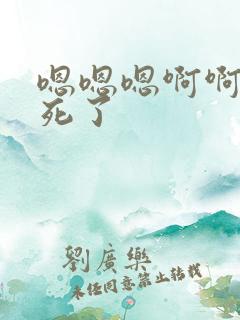 嗯嗯嗯啊啊
死了
劉廣樂
未经同意禁止转载